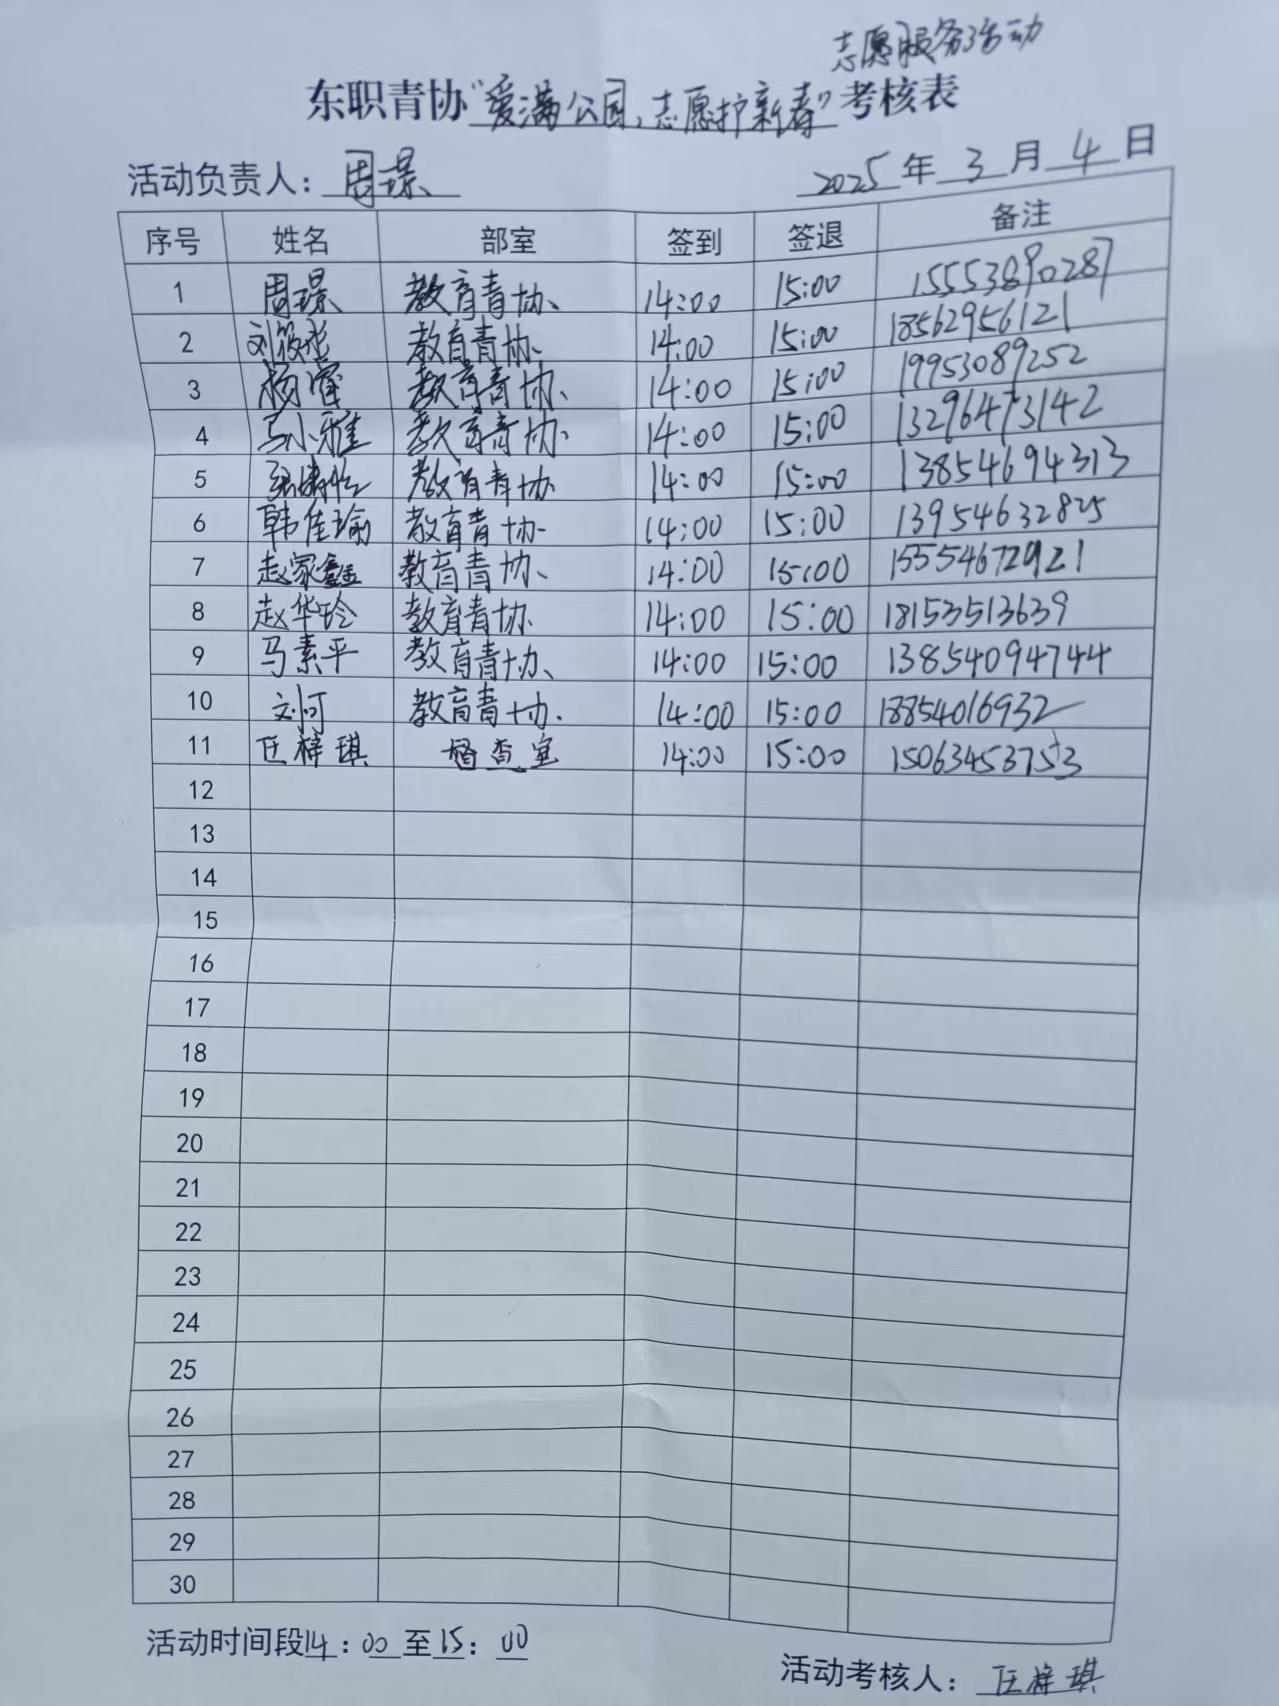 志愿服务活动
东职青协“爱满公园,志愿护新春”考核表
活动负责人: 周璟 2025年3月4日
序号 姓名 部室 签到 签退 备注
1 周璟 教育青协 14:00 15:00 15553890287
2 刘筱 教育青协 14:00 15:00 18562956121
3 杨 教育青协 14:00 15:00 19953089252
4 马小雅 教育青协 14:00 15:00 13296473142
5 教育青协 14:00 15:00 13854694313
6 韩佳瑜 教育青协 14:00 15:00 13954632825
7 赵家鑫 教育青协 14:00 15:00 15554672921
8 赵华玲 教育青协 14:00 15:00 18153513639
9 马素平 教育青协 14:00 15:00 13854094744
10 刘可 教育青协 14:00 15:00 18854016932
11 任梓琪 督查室 14:00 15:00 15063453753
12
13
14
15
16
17
18
19
20
21
22
23
24
25
26
27
28
29
30
活动时间段14:00至15:00
活动考核人: 任梓琪